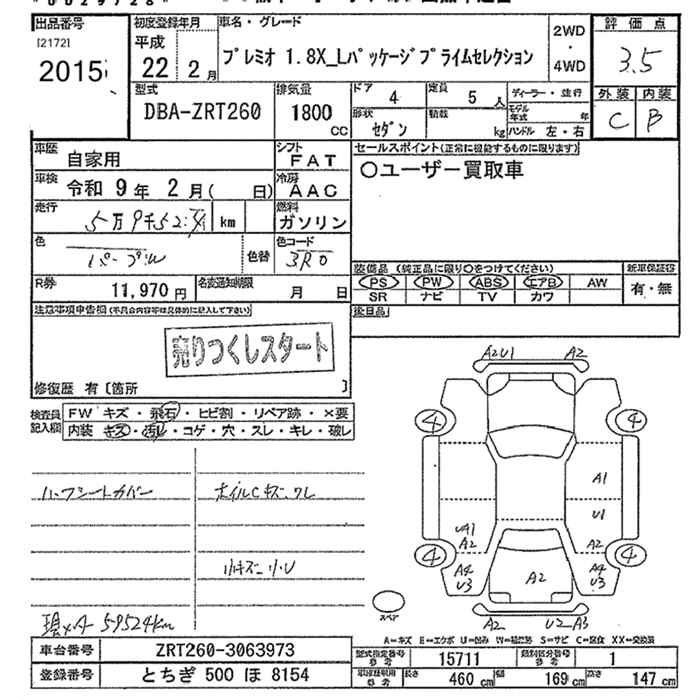 出品番号
[2172]
2015
初度登録年月
平成
22 2月
車名・グレード
プレミオ 1.8X_Lパッケージプライムセレクション
2WD
・
4WD
評価点
3.5
外装 内装
C B
型式
DBA-ZRT260
排気量
1800
CC
ドア 4
定員 5 人
形状 セダン
積載 kg
ディーラー・並行
モデル年式 年
ハンドル 左・右
車歴 自家用
シフト FAT
車検 令和 9年 2月( 日)
冷房 AAC
走行 km
燃料 ガソリン
色 パープル
色替
色コード 3R0
R券 11,970円
名変通知期限 月 日
セールスポイント(正常に機能するものに限ります)
○ユーザー買取車
装備品 (純正品に限り○をつけてください)
新車保証書
PS PW ABS エアB AW
SR ナビ TV カワ
有・無
後日品
注意事項申告欄(不具合内容等は具体的に記入して下さい)
売りつくしスタート
修復歴 有〔箇所 〕
検査員記入欄
FW キズ・飛石・ヒビ割・リペア跡・×要
内装 キズ・汚れ・コゲ・穴・スレ・キレ・破レ
ハーフシートカバー
ホイルCキズ、ワレ
小キズ 小U
現メーター 59524km
A2U1 A2
4 4
A1
U1
UA1
A2 A2
4 4
A4
U3
A2
A4
U3
スペア
A2 U2 A3
A=キズ E=エクボ U=凹み W=補修跡 S=サビ C=腐食 XX=交換済
車台番号 ZRT260-3063973
登録番号 とちぎ 500 ほ 8154
型式指定番号 参考 15711
類別区分番号 参考 1
車両諸元 参考 長さ 460 cm 幅 169 cm 高さ 147 cm